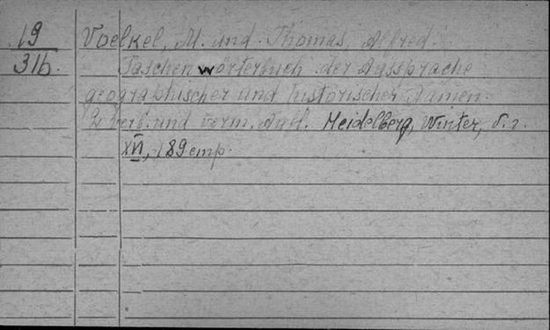 19
31b.
Voelkel, M. und Thomas, Alfred.
Taschenwörterbuch der Aussprache
geographischer und historischer Namen.
2. verb. und verm. Aufl. Heidelberg, Winter,
XVI, 189 cmp.